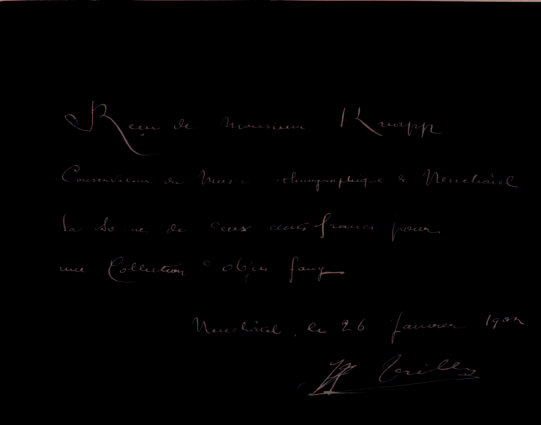 Reçu de Monsieur Knapp
Conservateur du Musée ethnographique de Neuchâtel
la Somme de deux cents francs pour
une Collection d'objets fang
Neuchâtel, le 26 Janvier